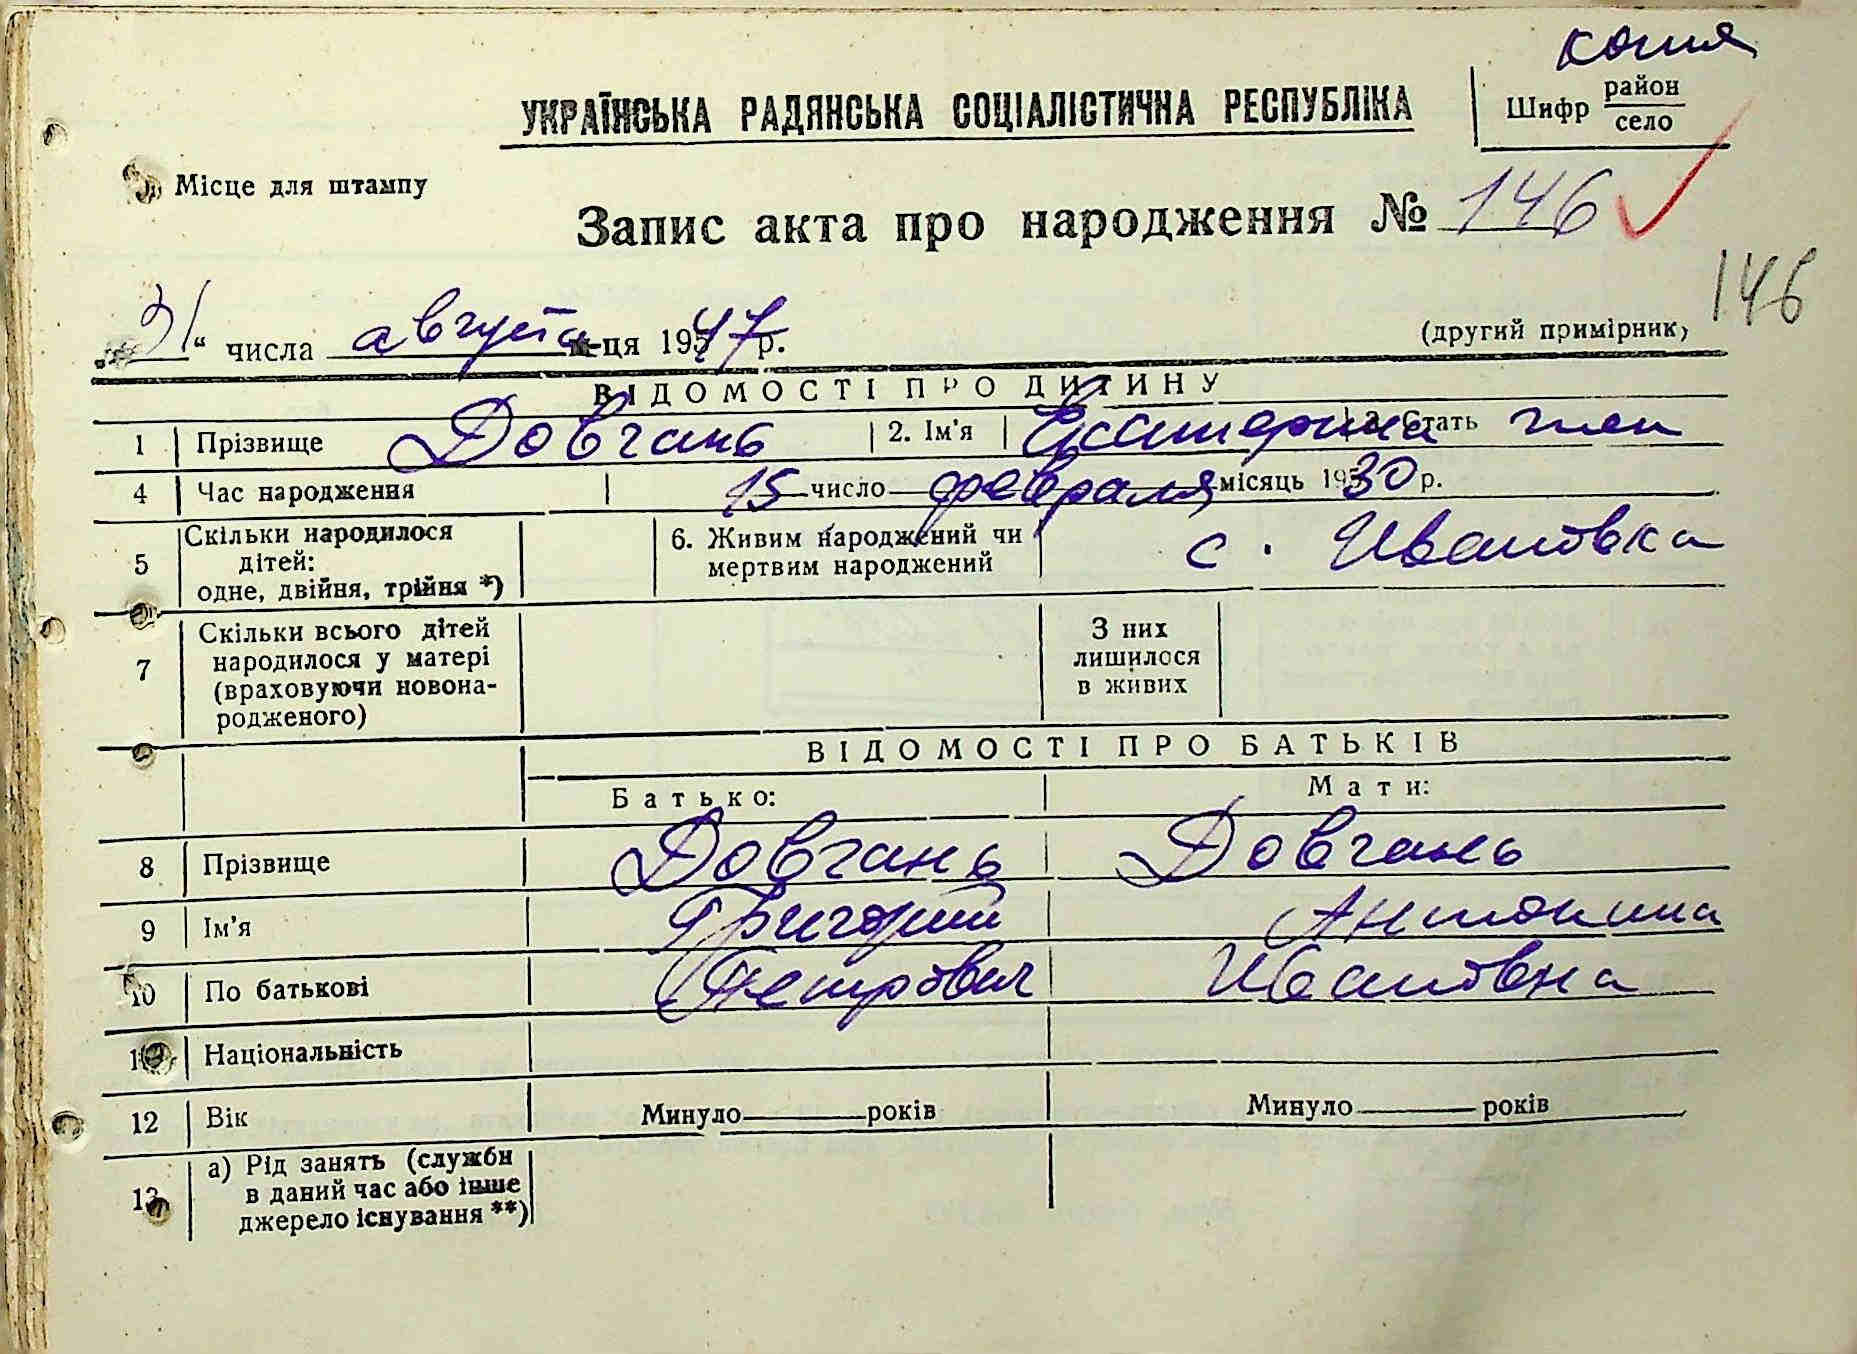 копия
УКРАЇНСЬКА РАДЯНСЬКА СОЦІАЛІСТИЧНА РЕСПУБЛІКА
Шифр район село
Місце для штампу
Запис акта про народження № 146
146
„31“ числа августа м-ця 1947 р.
(другий примірник)
ВІДОМОСТІ ПРО ДИТИНУ
1 Прізвище Довгань 2. Ім'я Екатерина 3. Стать жен
4 Час народження 15 число февраля місяць 1930 р.
5 Скільки народилося дітей: одне, двійня, трійня *) 6. Живим народжений чи мертвим народжений с. Ивановка
7 Скільки всього дітей народилося у матері (враховуючи новонародженого) З них лишилося в живих
ВІДОМОСТІ ПРО БАТЬКІВ
Батько: Мати:
8 Прізвище Довгань Довгань
9 Ім'я Григорий Антонина
10 По батькові Петрович Ивановна
Національність
12 Вік Минуло років Минуло років
13 а) Рід занять (служби в даний час або інше джерело існування **)